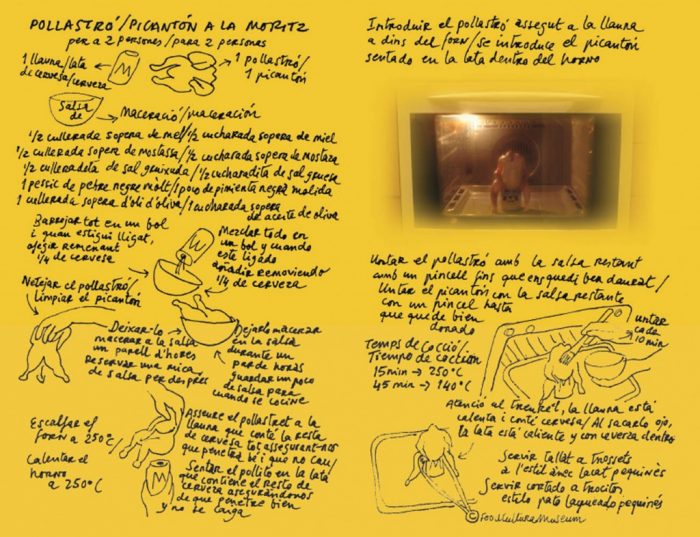 POLLASTRÓ/PICANTÓN A LA MORITZ
per a 2 persones/para 2 persones
1 llauna/lata
de cervesa/cerveza
M
1 pollastró/
1 picantón
Salsa
de
Maceració/maceración
1/2 cullerada sopera de mel/1/2 cucharada sopera de miel
1/2 cullerada sopera de mostassa/1/2 cucharada sopera de mostaza
1/2 culleradeta de sal gruixuda/1/2 cucharadita de sal gruesa
1 pessic de pebre negre mòlt/1 poco de pimienta negra molida
1 cullerada sopera d'oli d'oliva/1 cucharada sopera
de aceite de oliva
Barrejar tot en un bol
i quan estigui lligat,
afegir remenant
1/4 de cervesa
Mezclar todo en
un bol y cuando
este ligado
añadir removiendo
1/4 de cerveza
Netejar el pollastró/
Limpiar el picantón
Deixar-lo
macerar a la salsa
un parell d'hores
Reservar una mica
de salsa per després
Dejarlo macerar
en la salsa
durante un
par de horas
guardar un poco
de salsa para
cuando se cocine
Escalfar el
forn a 250°C
Calentar el
horno
a 250°C
Assure el pollastret a la
llauna que conté la resta
de cervesa tot assegurant-nos
que penetra bé i que no cau/
Sentar el pollito en la lata
que contiene el resto de
cerveza asegurándonos
de que penetre bien
y no se caiga
M
Introduir el pollastró assegut a la llauna
a dins del forn/se introduce el picantón
sentado en la lata dentro del horno
Untar el pollastró amb la salsa restant
amb un pincell fins que ens quedi ben daurat/
Untar el picantón con la salsa restante
con un pincel hasta
que quede bien
dorado
untar
cada
10 min
Temps de cocció/
Tiempo de cocción
15 min → 250°C
45 min → 140°C
Atenció al treure'l, la llauna està
calenta i conté cervesa/Al sacarlo ojo,
la lata esta caliente y con cerveza dentro
Servir tallat a trossets
a l'estil ànec lacat pequinès
Servir cortado a trocitos
estilo pato laqueado pequinés
©FoodCulturaMuseum